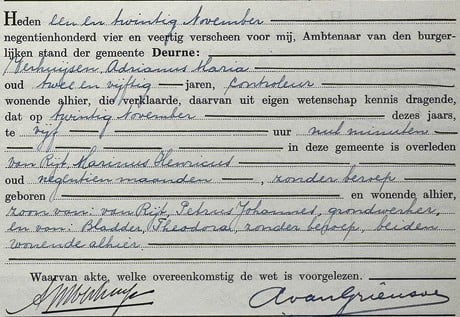 Heden een en twintig November
negentienhonderd vier en veertig verscheen voor mij, Ambtenaar van den burger-
lijken stand der gemeente Deurne:
Verhuijsen, Adrianus Maria
oud twee en vijftig jaren, controleur
wonende alhier, die verklaarde, daarvan uit eigen wetenschap kennis dragende,
dat op twintig November dezes jaars,
te vijf uur nul minuten
in deze gemeente is overleden
van Rijt, Marinus Henricus
oud negentien maanden, zonder beroep
geboren en wonende alhier,
zoon van: van Rijt, Petrus Johannes, grondwerker,
en van: Bladder, Theodora, zonder beroep, beiden
wonende alhier.
Waarvan akte, welke overeenkomstig de wet is voorgelezen.